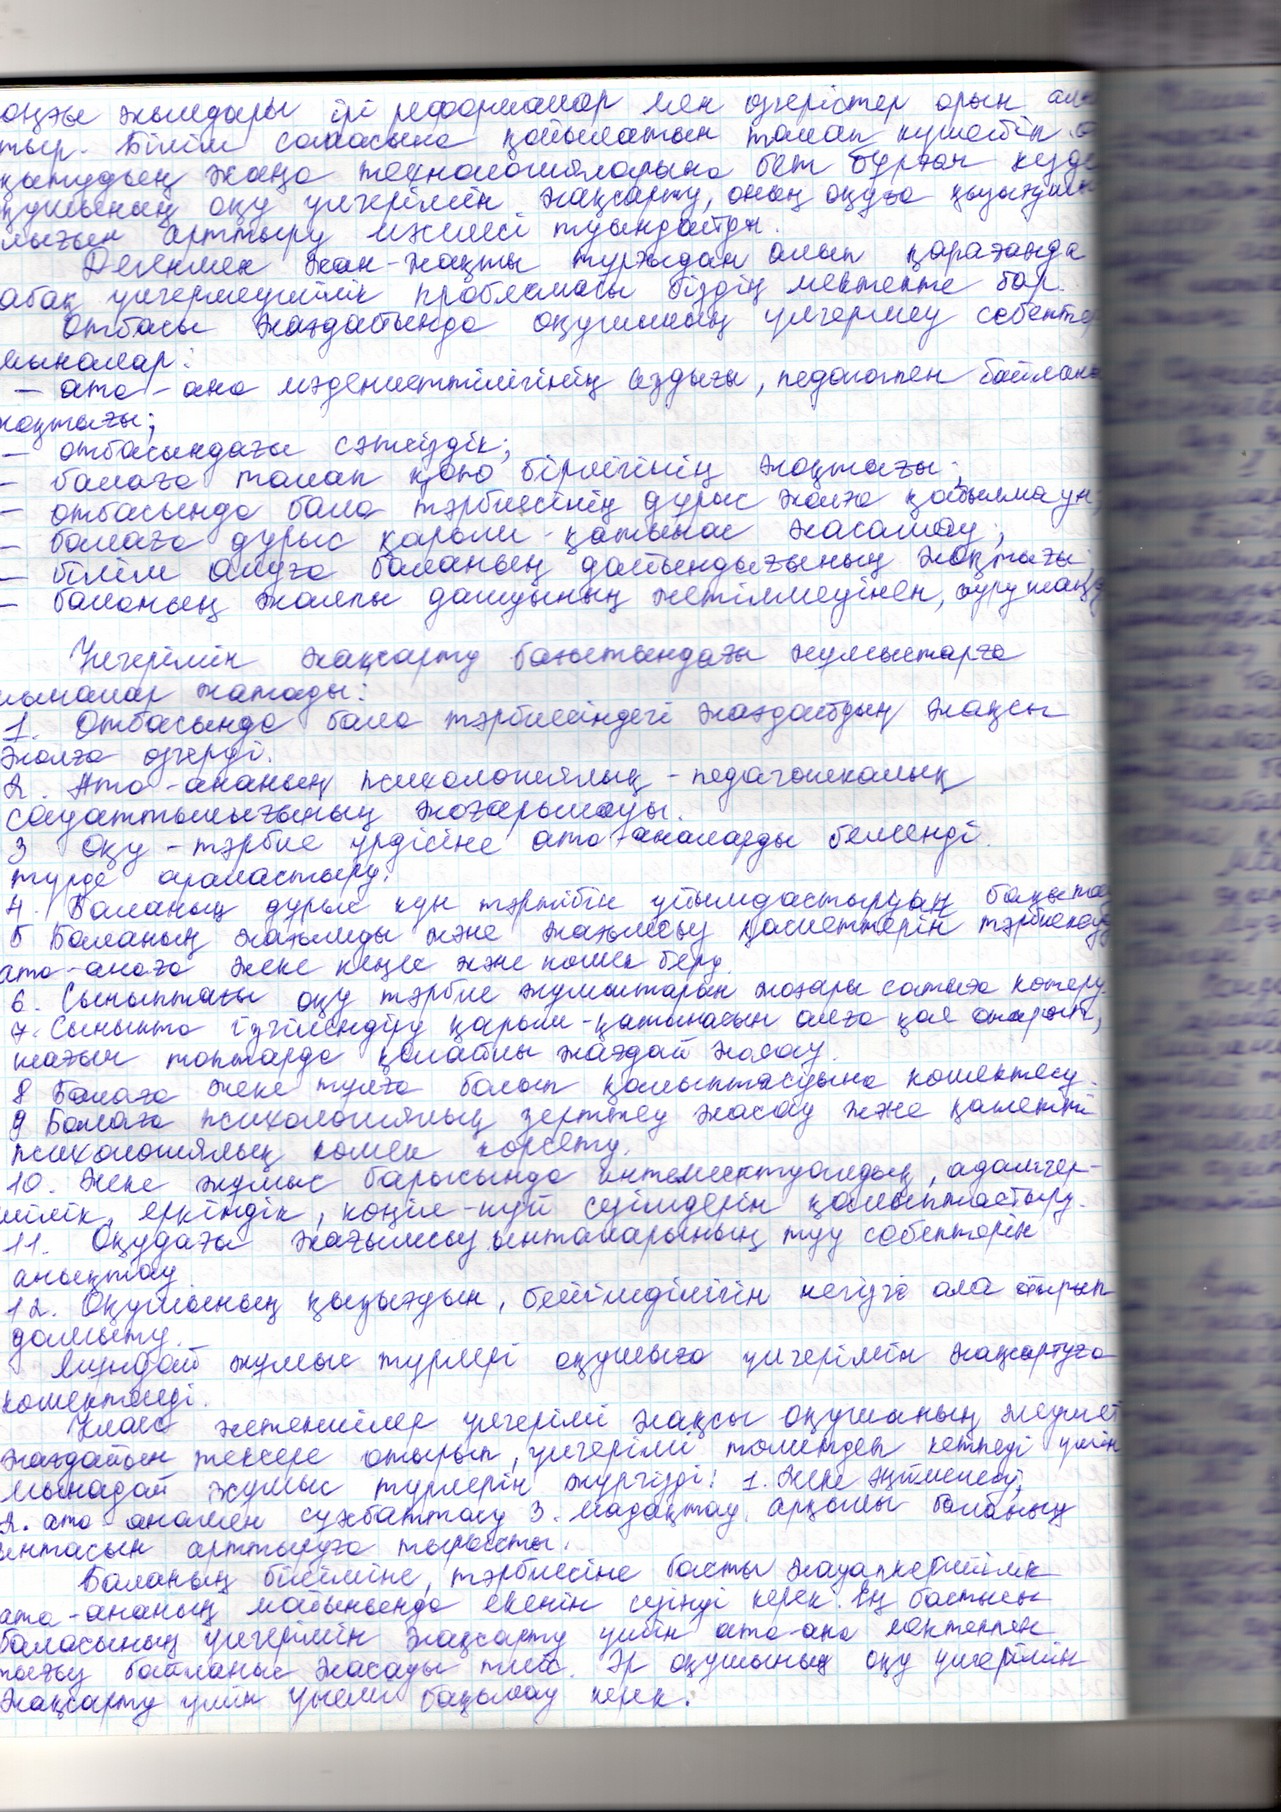 оңғы жылдары ірі реформалар мен өзгерістер орын ал
тыр. Білім сапасына қойылатын талап күшейіп о
қытудың жаңа технологияларына бет бұрған кезде
қушының оқу үлгерімін жақсарту, оның оқуға қызығушы
лығын арттыру мәселесі туындайды.
Дегенмен жан-жақты тұрғыдан алып қарағанда
абақ үлгермеушілік проблемасы біздің мектепте бар.
Отбасы жағдайында оқушының үлгермеу себептер
мыналар:
– ата-ана мәдениеттілігінің аздығы, педагогпен байланы
жоқтығы;
– отбасындағы сәтсіздік;
– балаға талап қою бірлігінің жоқтығы;
– отбасында бала тәрбиесінің дұрыс жолға қойылмауы,
– балаға дұрыс қарым-қатынас жасамау;
– білім алуға баланың дайындығының жоқтығы
– баланың жалпы дамуының жетілмеуінен,
Үлгерімін жақсарту бағытындағы жұмыстарға
мыналар жатады:
1. Отбасында бала тәрбиесіндегі жағдайдың жақсы
жолға өзгерді.
2. Ата-ананың психологиялық-педагогикалық
сауаттылығының жоғарылауы.
3 Оқу-тәрбие үрдісіне ата-аналарды белсенді
түрде араластыру.
4. Баланың дұрыс күн тәртібін ұйымдастыруын бақылау
5 Баланың жағымды және жағымсыз қасиеттерін тәрбиелеуде
ата-анаға жеке кеңес және көмек беру.
6. Сыныптағы оқу тәрбие жұмыстарын жоғары сатыға көтеру.
7. Сыныпта ізгілендіру қарым-қатынасын алға қоя отырып,
шағын топтарда қолайлы жағдай жасау.
8 Балаға жеке тұлға болып қалыптасуына көмектесу.
9 Балаға психологиялық зерттеу жасау және қажетті
психологиялық көмек көрсету.
10. Жеке жұмыс барысында интеллектуалдық, адамгер-
шілік, еркіндік, көңіл-күй сезімдерін қалыптастыру.
11. Оқудағы жағымсыз ынталарының туу себептерін
анықтау.
12. Оқушының қызығуын, бейімділігін негізге ала отырып
дамыту.
Мұндай жұмыс түрлері оқушыға үлгерімін жақсартуға
көмектеседі.
Ұлағ жетекшілер үлгерімі жақсы оқушаның
жағдайын тексере отырып, үлгерімі төмендеп кетпеді үшін
мынадай жұмыс түрлерін жүргізді: 1. Жеке әңгімелесу,
2. ата-анамен сұхбаттасу 3. мадақтау арқылы баланың
ынтасын арттыруға тырысты.
Баланың біліміне, тәрбиесіне басты жауапкершілік
ата-ананың мойнында екенін сезінді керек. Ең бастысы
баласының үлгерімін жақсарту үшін ата-ана мектеппен
тығыз байланыс жасады тиіс. Әр оқушының оқу үлгерімін
жақсарту үшін ұдайы бақылау керек.